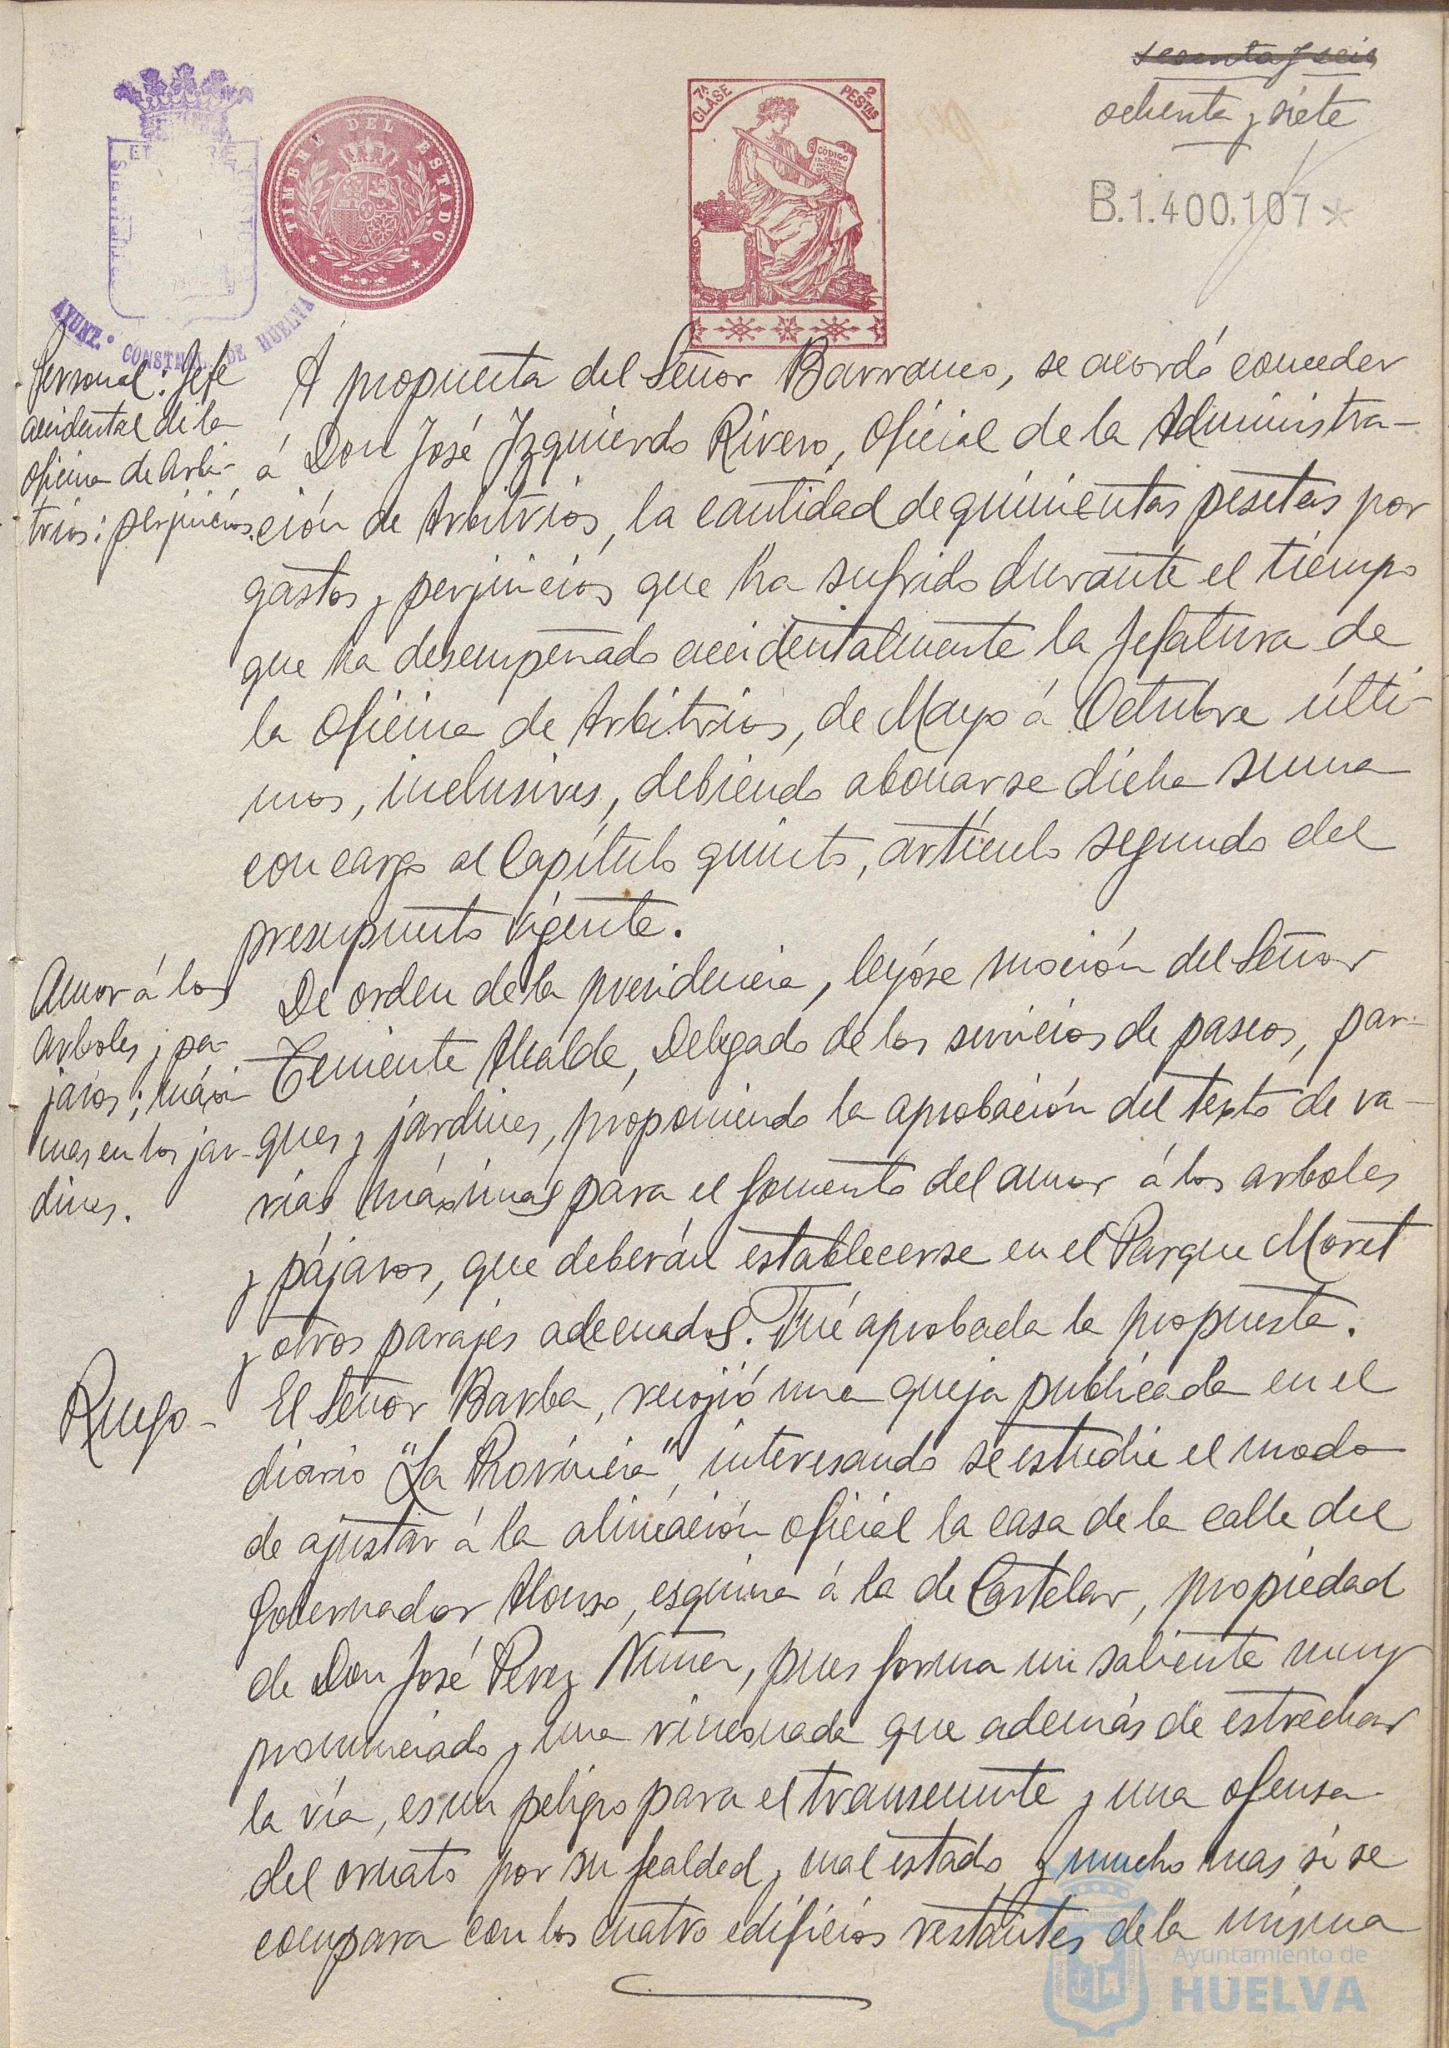 ~~sesenta y seis~~
setenta y siete
B.1.400.107*
7ª CLASE
2 PESTAS
CÓDIGO
TIMBRE DEL ESTADO
AYUNT. CONSTNAL. DE HUELVA
Personal: Jefe
accidental de la
oficina de Arbi-
trios: perjuicios.
A propuesta del Señor Barranco, se acordó conceder
á Don José Izquierdo Rivero, Oficial de la Administra-
ción de Arbitrios, la cantidad de quinientas pesetas por
gastos y perjuicios que ha sufrido durante el tiempo
que ha desempeñado accidentalmente la Jefatura de
la oficina de Arbitrios, de Mayo á Octubre últi-
mos, inclusives, debiendo abonarse dicha suma
con cargo al Capítulo quinto, artículo segundo del
presupuesto vigente.
Amor á los
arboles y pa-
jaros; máxi-
mas en los jar-
dines.
De orden de la presidencia, leyóse moción del Señor
Teniente Alcalde, Delegado de los servicios de paseos, par-
ques y jardines, proponiendo la aprobación del texto de va-
rias máximas para el fomento del amor á los arboles
y pájaros, que deberán establecerse en el Parque Moret
y otros parajes adecuados. Fué aprobada la propuesta.
Ruego-
El Señor Barba, recojió una queja publicada en el
diario "La Provincia", interesando se estudie el modo
de ajustar á la alineación oficial la casa de la calle del
Gobernador Alonso, esquina á la de Castelar, propiedad
de Don José Perez Nuñez, pues forma un saliente muy
pronunciado y una rinconada que además de estrechar
la vía, es un peligro para el transeunte y una ofensa
del ornato por su fealdad y mal estado, y mucho mas si se
compara con los cuatro edificios restantes de la misma
Ayuntamiento de
HUELVA